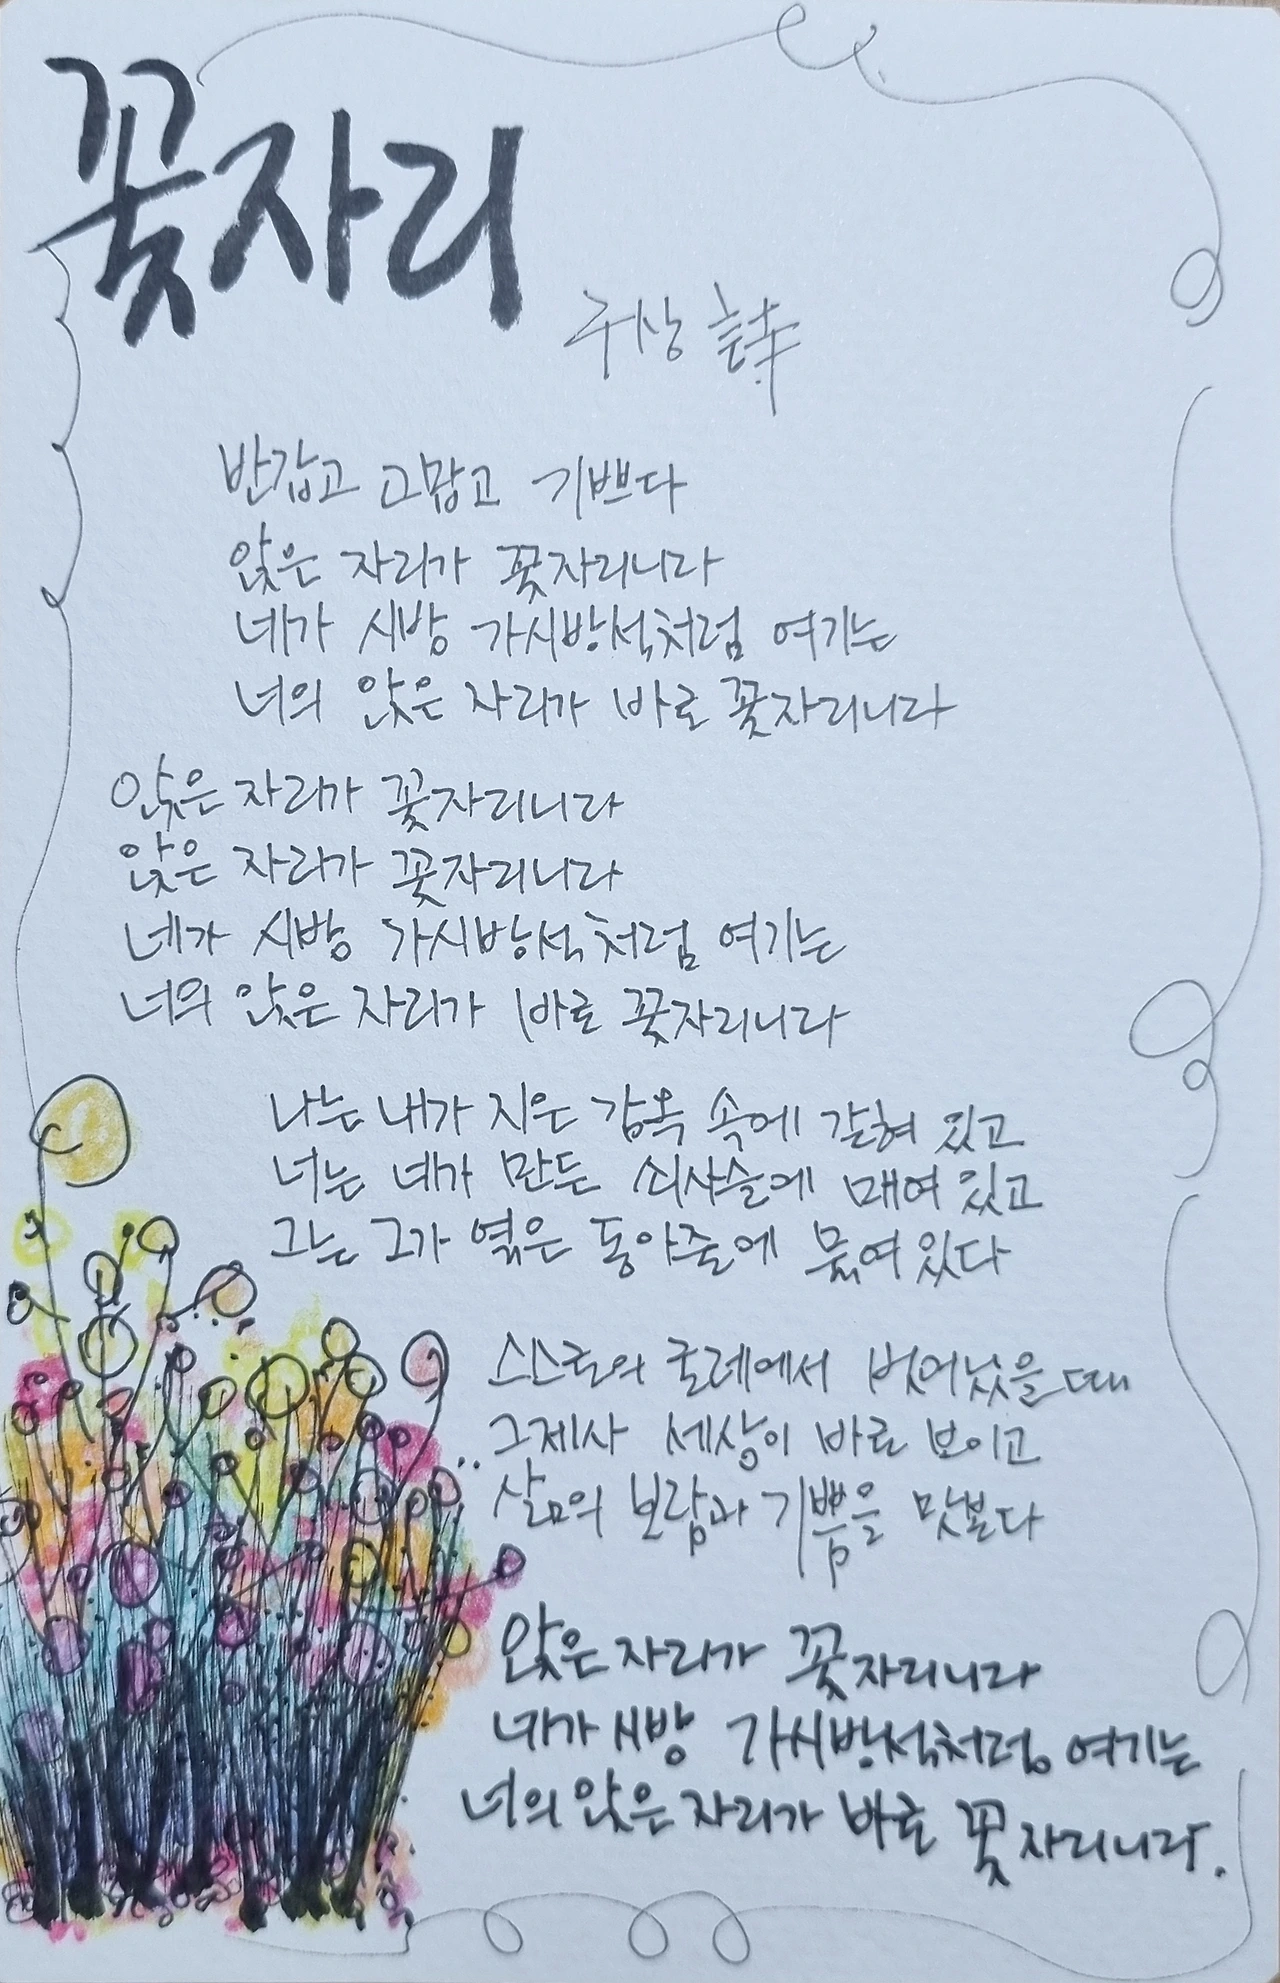 꽃자리
구상 詩
반갑고 고맙고 기쁘다
앉은 자리가 꽃자리니라
네가 시방 가시방석처럼 여기는
너의 앉은 자리가 바로 꽃자리니라
앉은 자리가 꽃자리니라
앉은 자리가 꽃자리니라
네가 시방 가시방석처럼 여기는
너의 앉은 자리가 바로 꽃자리니라
나는 내가 지은 감옥 속에 갇혀 있고
너는 네가 만든 쇠사슬에 매여 있고
그는 그가 엮은 동아줄에 묶여 있다
스스로의 굴레에서 벗어났을 때
그제사 세상이 바로 보이고
삶의 보람과 기쁨을 맛본다
앉은 자리가 꽃자리니라
네가 시방 가시방석처럼 여기는
너의 앉은 자리가 바로 꽃자리니라.